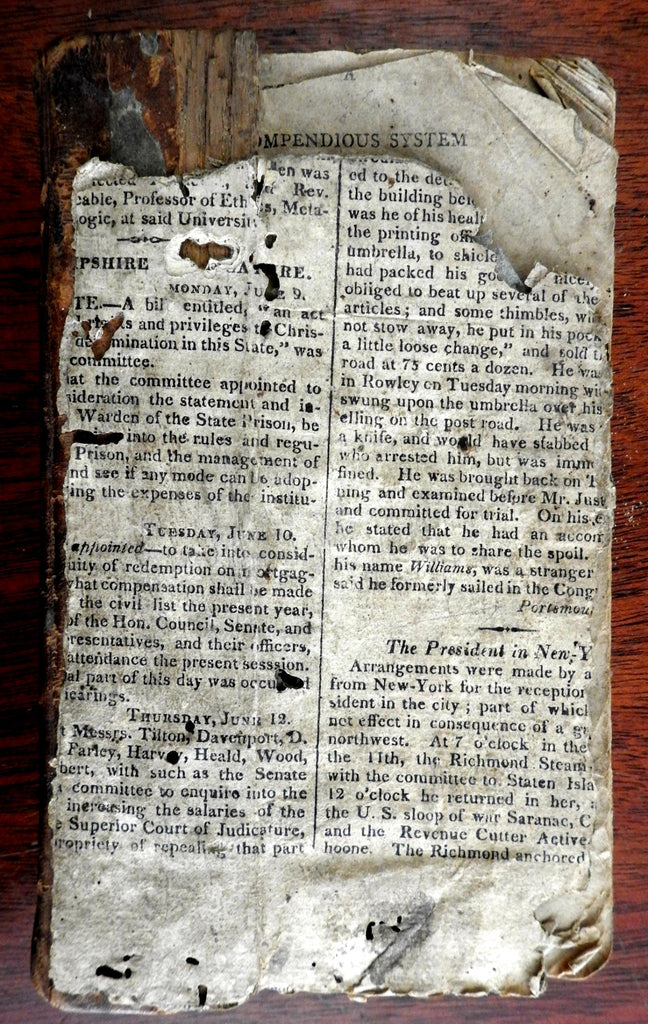 A
OMPENDIOUS SYSTEM
en was
Rev.
cable, Professor of Eth s, Meta-
ogic, at said Universit
PSHIRE URE.
MONDAY, JUNE 9.
TE.—A bil entitled, "an act
and privileges Chris-
mination in this State," was
committee.
at the committee appointed to
ideration the statement and in-
Warden of the State Prison, be
into the rules and regu-
Prison, and the management of
nd see if any mode can be adop-
ing the expenses of the institu-
TUESDAY, JUNE 10.
appointed—to take into consid-
uity of redemption on mortgag-
what compensation shall be made
the civil list the present year,
of the Hon. Council, Senate, and
resentatives, and their officers,
attendance the present sesssion.
al part of this day was occu d
icarings.
THURSDAY, JUNE 12.
t Messrs. Tilton, Davenport, D.
Farley, Harvey, Heald, Wood,
bert, with such as the Senate
committee to enquire into the
increasing the salaries of the
e Superior Court of Judicature,
ropriety of repealing that part
ed to the de
the building be
was he of his heal
the printing offi
umbrella, to shiel
had packed his go nicel
obliged to beat up several of the
articles; and some thimbles, wh
not stow away, he put in his pock
a little loose change," and sold t
road at 75 cents a dozen. He was
in Rowley on Tuesday morning wi
swung upon the umbrella over his
elling on the post road. He was
a knife, and would have stabbed
who arrested him, but was imm
fined. He was brought back on T
ning and examined before Mr. Just
and committed for trial. On his e
he stated that he had an accom
whom he was to share the spoil.
his name Williams, was a stranger
said he formerly sailed in the Cong
Portsmou
The President in New-Y
Arrangements were made by a
from New-York for the reception
sident in the city; part of which
not effect in consequence of a
northwest. At 7 o'clock in the
the 11th, the Richmond Steam
with the committee to Staten Isla
12 o'clock he returned in her, a
the U. S. sloop of war Saranac, C
and the Revenue Cutter Active
hoone. The Richmond anchored